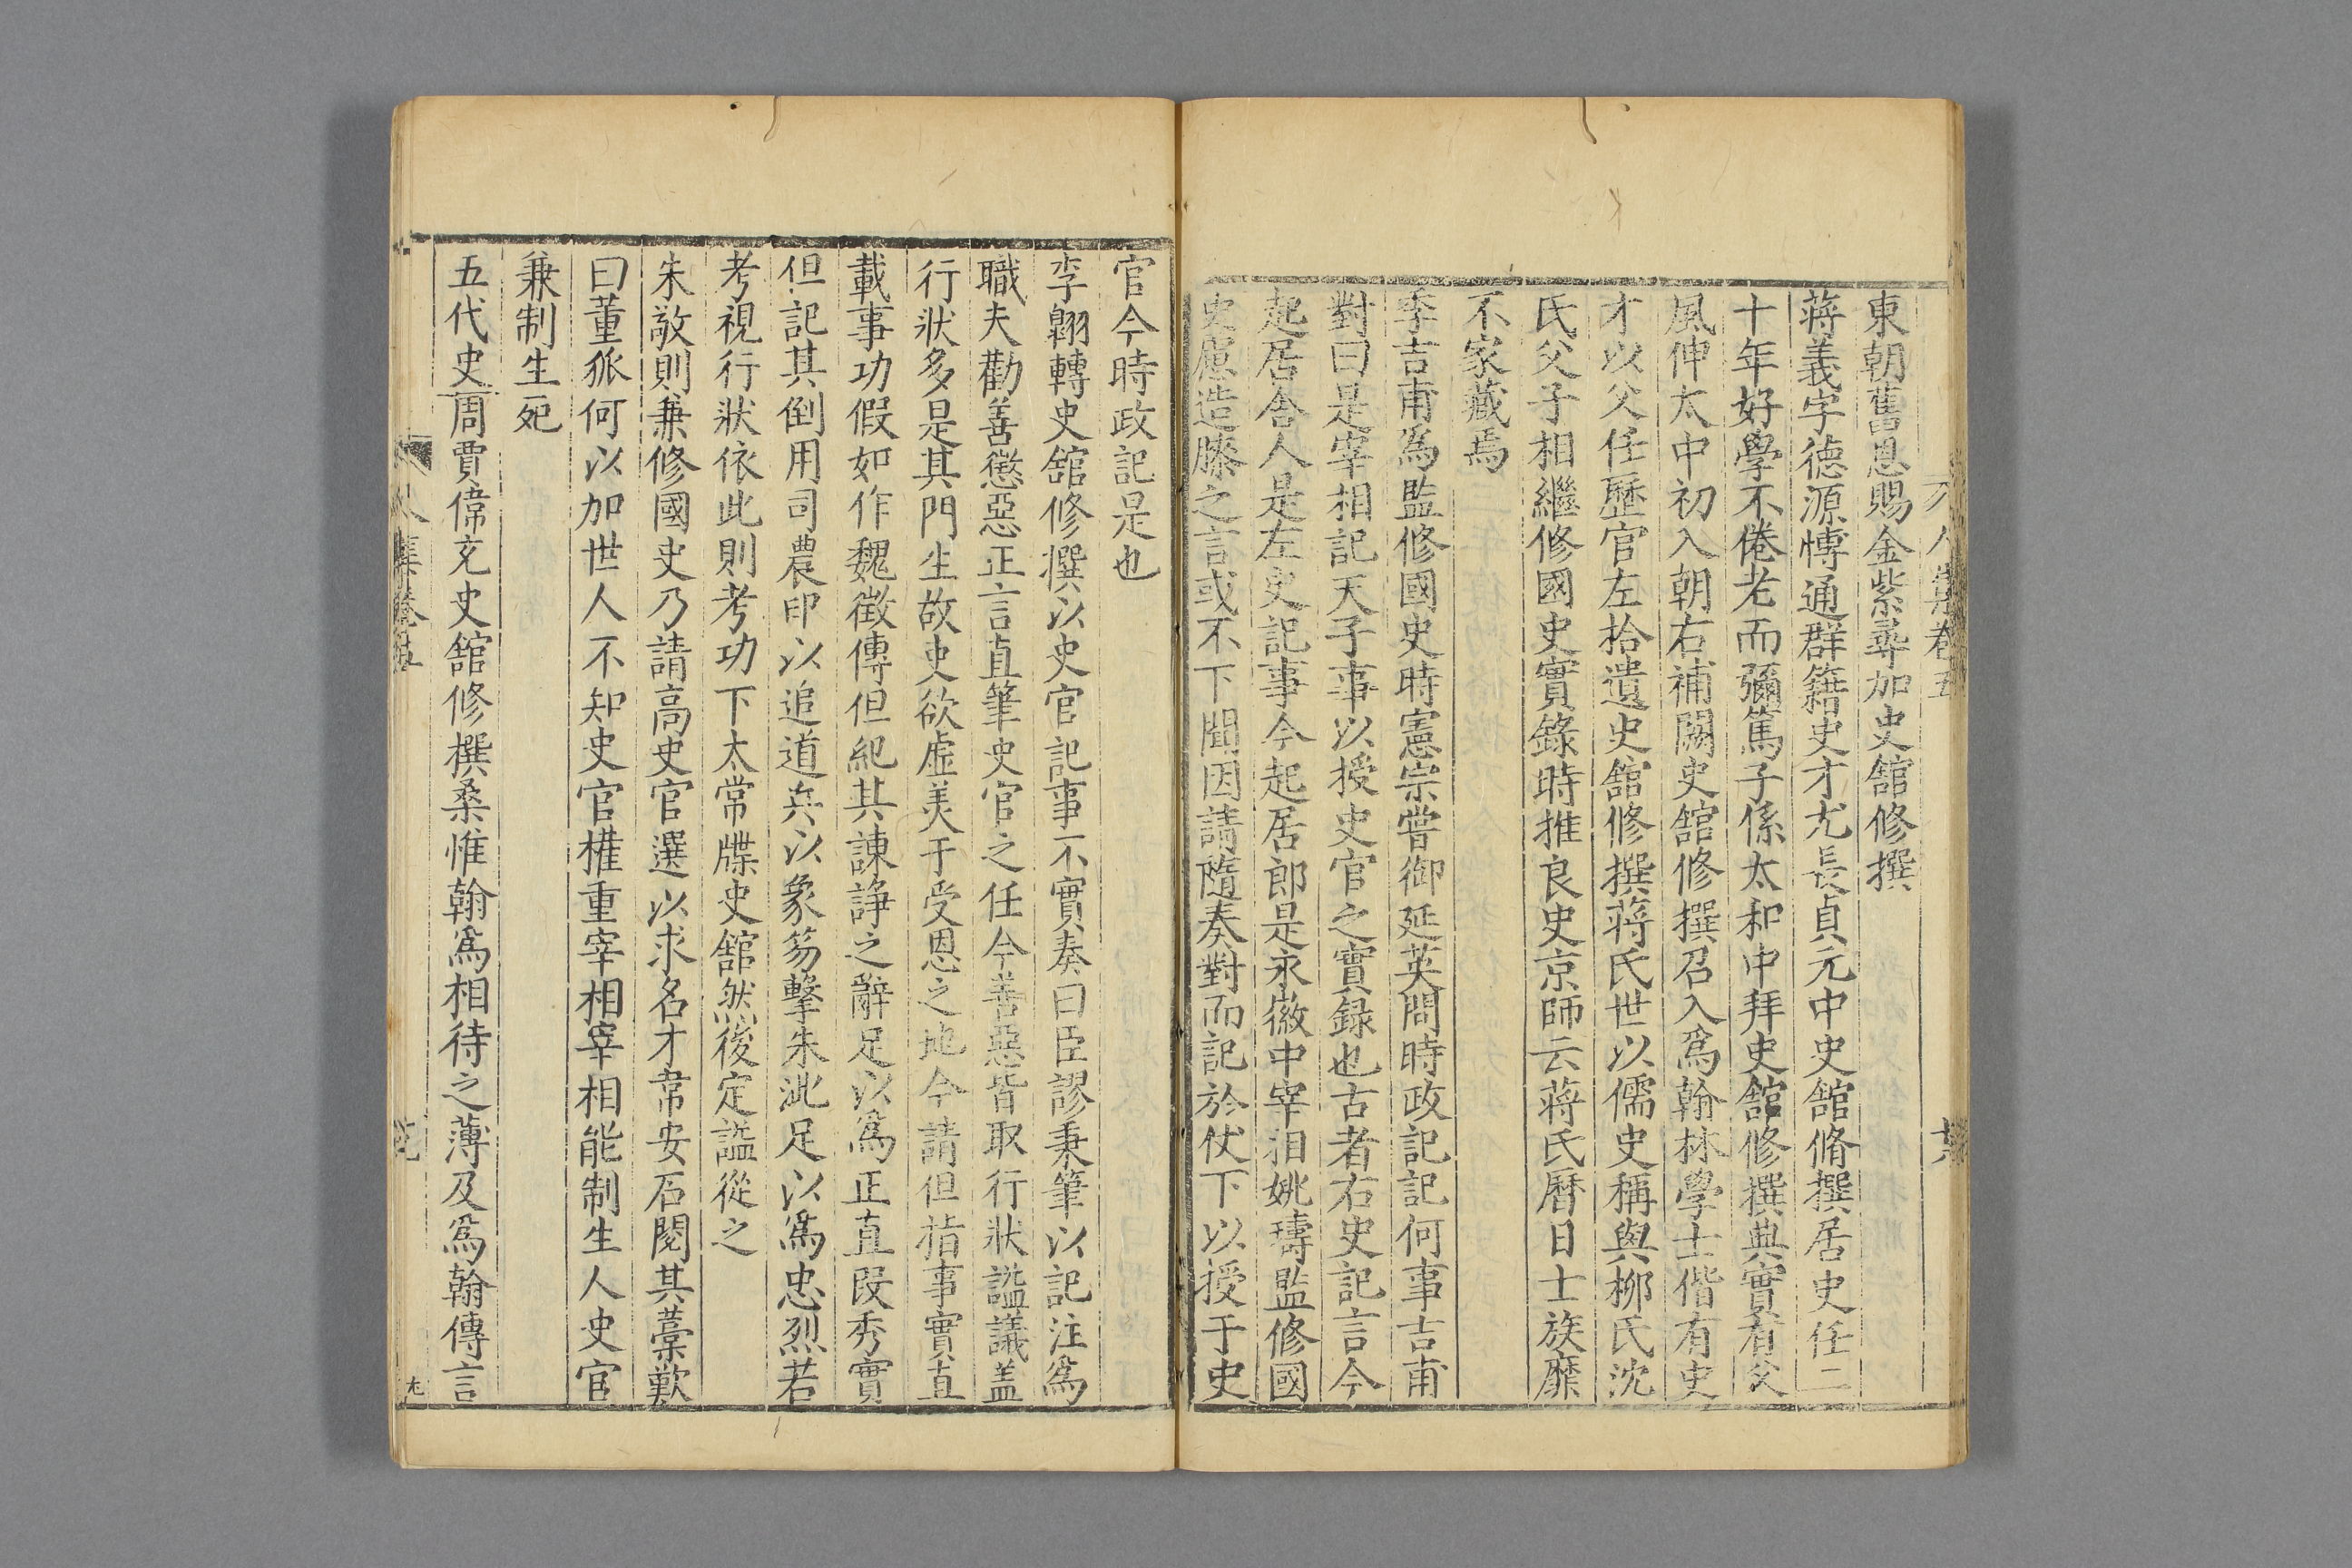 東朝舊恩賜金紫尋加史舘修撰
蒋義字徳源愽通群籍史才尤長貞元中史舘脩撰居史任二
十年好學不倦老而彌篤子係太和中拜史舘修撰典實有父
風伸太中初入朝右補闕史舘修撰召入爲翰林學士偕有史
才以父任歴官左拾遺史舘修撰蒋氏世以儒史稱與柳氏沈
氏父子相繼修國史實錄時推良史京師云蒋氏曆日士族靡
不家藏焉
李吉甫爲監修國史時憲宗嘗御延英問時政記記何事吉甫
對曰是宰相記天子事以授史官之實録也古者右史記言今
起居舎人是左史記事今起居郎是永徽中宰相姚璹監修國
史慮造膝之言或不下聞因請隨奏對而記於仗下以授于史
官今時政記是也
李翺轉史舘修撰以史官記事不實奏曰臣謬秉筆以記注爲
職夫勸善懲惡正言直筆史官之任今善惡皆取行狀謚議盖
行狀多是其門生故吏欲虚美于受恩之地今請但指事實直
載事功假如作魏徴傳但紀其諫諍之辭足以爲正直叚秀實
但記其倒用司農印以追道兵以象笏擊朱泚足以爲忠烈若
考視行狀依此則考功下太常牒史舘然後定謚從之
朱敬則兼修國史乃請高史官選以求名才韋安石閱其藁歎
曰董狐何以加世人不知史官權重宰相宰相能制生人史官
兼制生死
五代史周賈偉充史舘修撰桑惟翰爲相待之薄及爲翰傳言